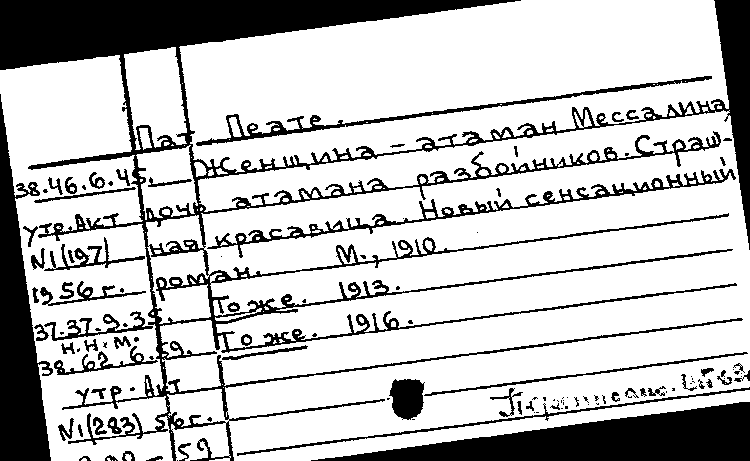 Пат. Пеате.
38.46.6.45. Женщина - атаман Мессалина
утр. Акт дочь атамана разбойников. Страш-
N1(197) ная красавица. Новый сенсационный
1956 г. роман. М., 1910.
37.37.9.35. То же. 1913.
н.н.м.
38.62.6.59. То же. 1916.
утр. Акт
N1(283) 56 г.
59